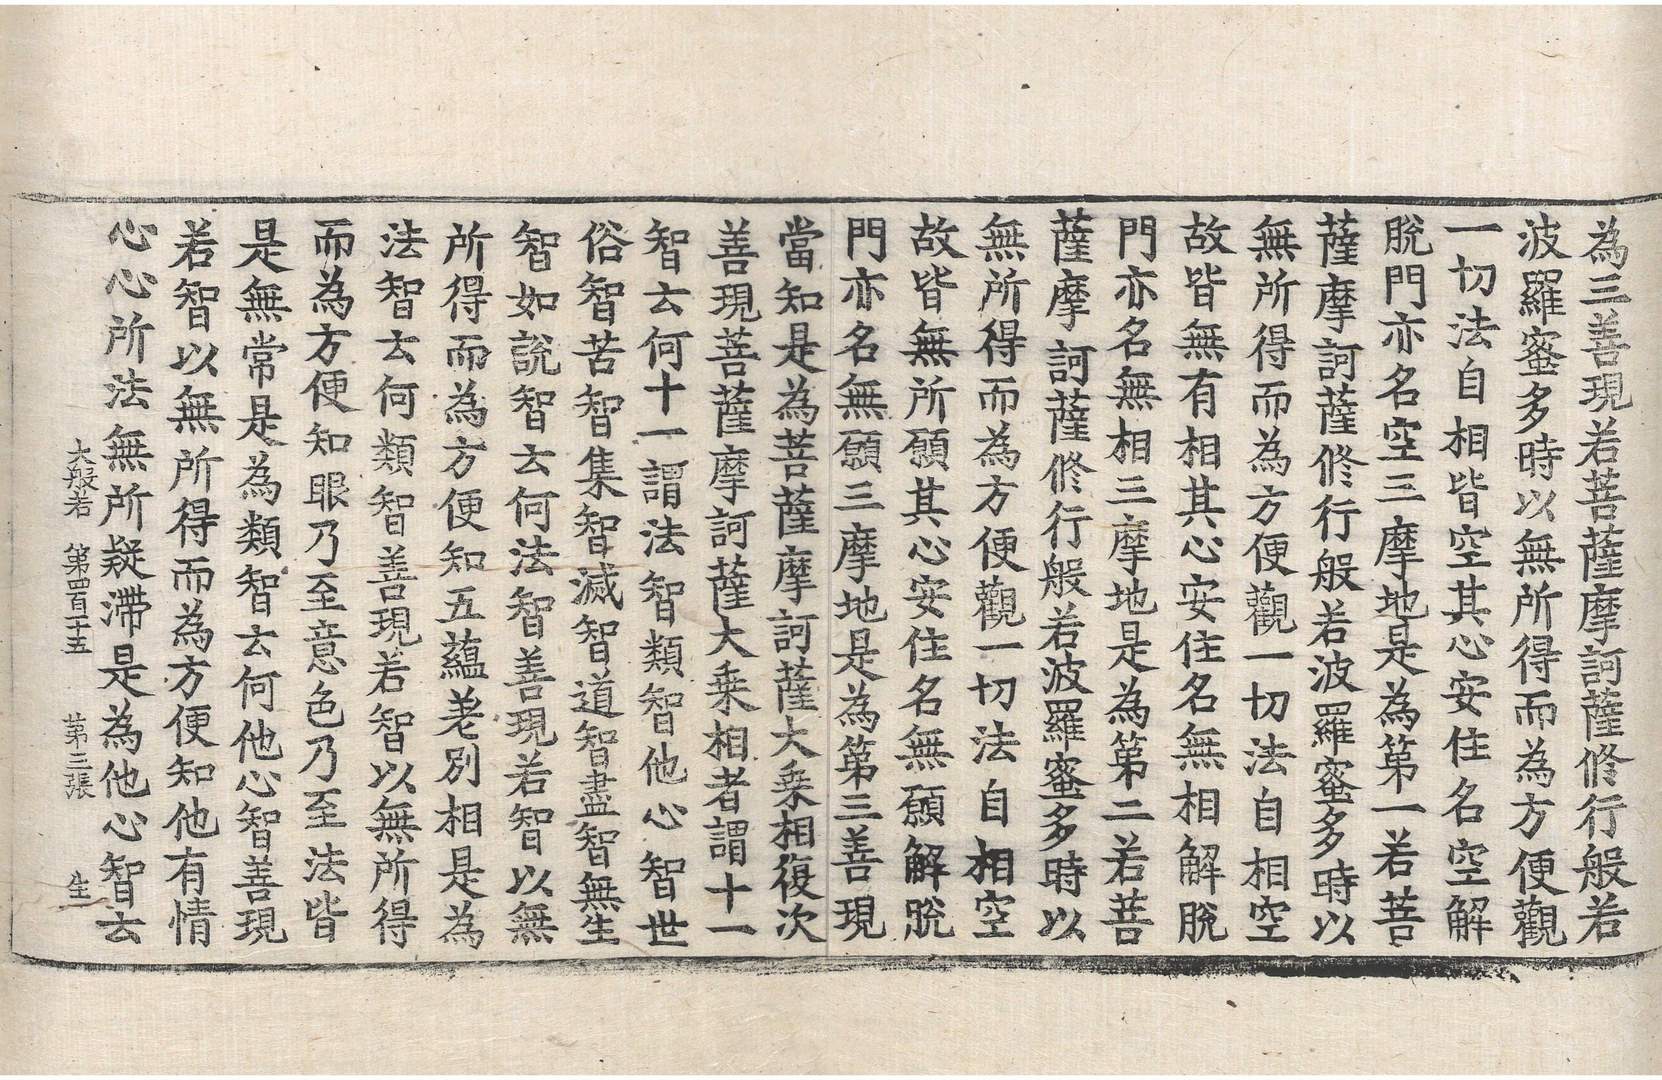 為三善現若菩薩摩訶薩修行般若
波羅蜜多時以無所得而為方便觀
一切法自相皆空其心安住名空解
脫門亦名空三摩地是為第一若菩
薩摩訶薩修行般若波羅蜜多時以
無所得而為方便觀一切法自相空
故皆無有相其心安住名無相解脫
門亦名無相三摩地是為第二若菩
薩摩訶薩修行般若波羅蜜多時以
無所得而為方便觀一切法自相空
故皆無所願其心安住名無願解脫
門亦名無願三摩地是為第三善現
當知是為菩薩摩訶薩大乘相復次
善現菩薩摩訶薩大乘相者謂十一
智云何十一謂法智類智他心智世
俗智苦智集智滅智道智盡智無生
智如說智云何法智善現若智以無
所得而為方便知五蘊差別相是為
法智云何類智善現若智以無所得
而為方便知眼乃至意色乃至法皆
是無常是為類智云何他心智善現
若智以無所得而為方便知他有情
心心所法無所疑滯是為他心智云
大般若 第四百十五 第三張 生